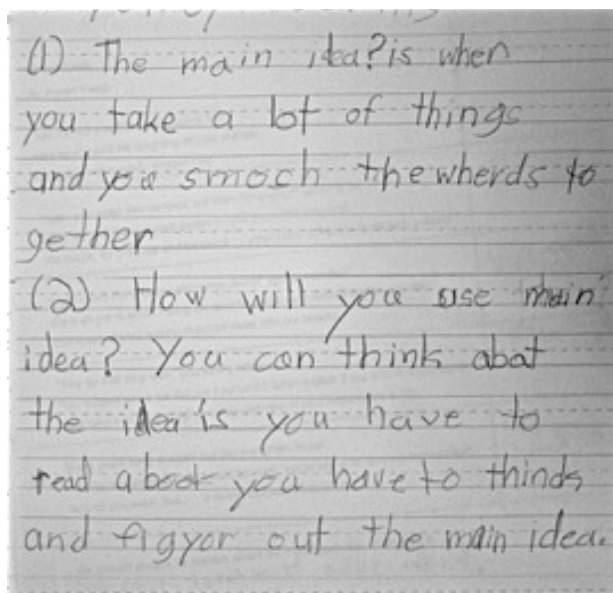 (1) The main idea? is when
you take a lot of things
and you smoch the wherds to
gether
(2) How will you use main
idea? You can think abat
the idea is you have to
read a book you have to thinds
and figyor out the main idea.